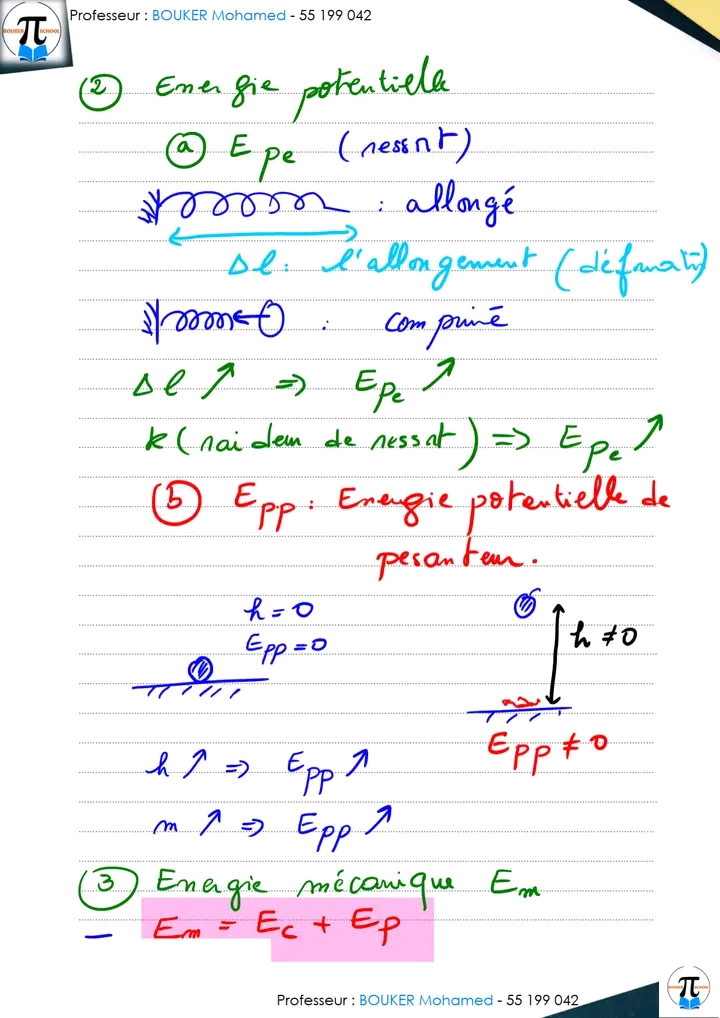 Professeur : BOUKER Mohamed - 55 199 042
π
BOUKER SCHOOL
② Energie potentielle
ⓐ Epe (ressort)
: allongé
Δl : l'allongement (déformation)
: comprimé
Δl ↗ => Epe ↗
k (raideur de ressort) => Epe ↗
ⓑ Epp : Energie potentielle de
pesanteur.
h = 0
Epp = 0
h ≠ 0
Epp ≠ 0
h ↗ => Epp ↗
m ↗ => Epp ↗
③ Energie mécanique Em
– Em = Ec + Ep
Professeur : BOUKER Mohamed - 55 199 042
π